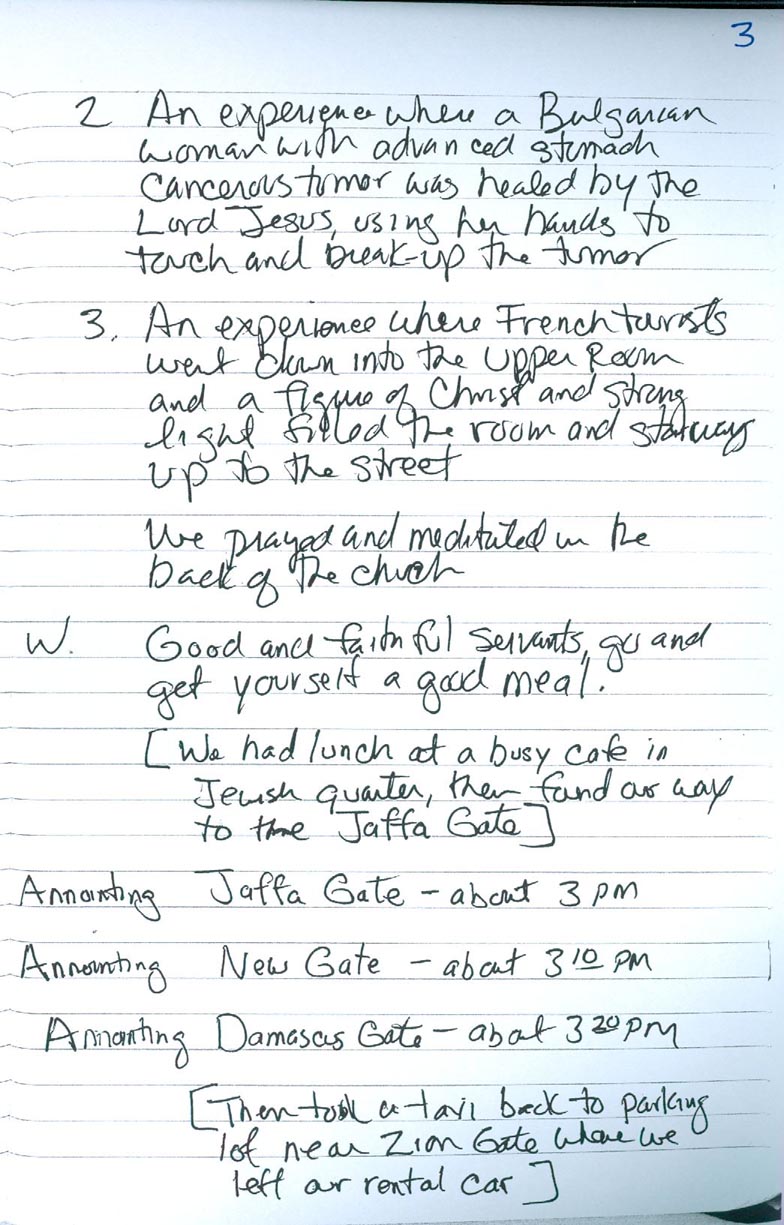 3
2 An experience where a Bulgarian
woman with advanced stomach
cancerous tumor was healed by the
Lord Jesus, using her hands to
touch and break-up the tumor
3. An experience where French tourists
went down into the Upper Room
and a figure of Christ and strong
light filled the room and stairway
up to the street
We prayed and meditated in the
back of the church
W. Good and faithful servants, go and
get yourself a good meal.
[We had lunch at a busy cafe in
Jewish quarter, then found our way
to the Jaffa Gate]
Annointing Jaffa Gate - about 3 pm
Annointing New Gate - about 3 10 PM
Annointing Damascus Gate - about 3 20 PM
[Then took a taxi back to parking
lot near Zion Gate where we
left our rental car]